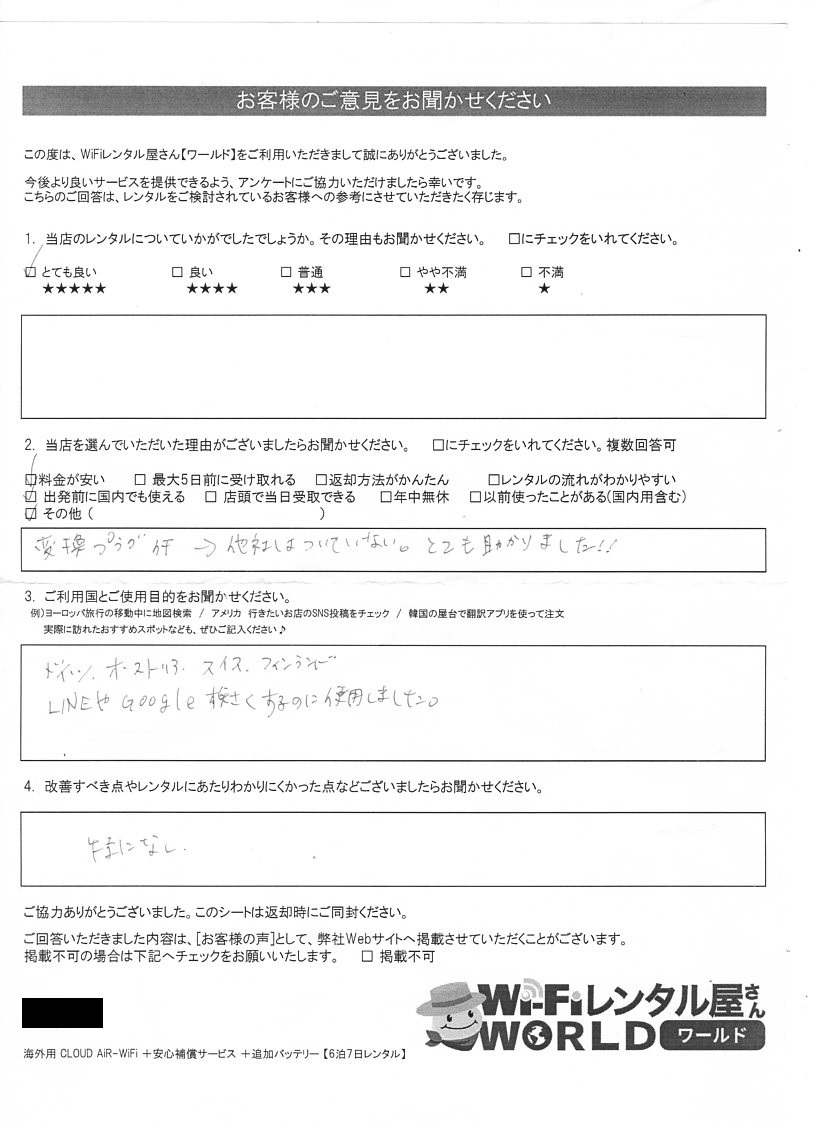 お客様のご意見をお聞かせください
この度は、WiFiレンタル屋さん【ワールド】をご利用いただきまして誠にありがとうございました。
今後より良いサービスを提供できるよう、アンケートにご協力いただけましたら幸いです。
こちらのご回答は、レンタルをご検討されているお客様への参考にさせていただきたく存じます。
1. 当店のレンタルについていかがでしたでしょうか。その理由もお聞かせください。 □にチェックをいれてください。
☑ とても良い □ 良い □ 普通 □ やや不満 □ 不満
★★★★★ ★★★★ ★★★ ★★ ★
2. 当店を選んでいただいた理由がございましたらお聞かせください。 □にチェックをいれてください。複数回答可
☑料金が安い □ 最大5日前に受け取れる □返却方法がかんたん □レンタルの流れがわかりやすい
☑ 出発前に国内でも使える □ 店頭で当日受取できる □年中無休 □以前使ったことがある(国内用含む)
☑ その他 ( )
変換プラグ付 → 他社はついていない。とても助かりました!!
3. ご利用国とご使用目的をお聞かせください。
例)ヨーロッパ旅行の移動中に地図検索 / アメリカ 行きたいお店のSNS投稿をチェック / 韓国の屋台で翻訳アプリを使って注文
実際に訪れたおすすめスポットなども、ぜひご記入ください♪
ドイツ. オーストリア. スイス. フィンランド
LINEや Google 検さくするのに使用しました。
4. 改善すべき点やレンタルにあたりわかりにくかった点などございましたらお聞かせください。
特になし.
ご協力ありがとうございました。このシートは返却時にご同封ください。
ご回答いただきました内容は、[お客様の声]として、弊社Webサイトへ掲載させていただくことがございます。
掲載不可の場合は下記へチェックをお願いいたします。 □ 掲載不可
Wi-Fiレンタル屋さん
WORLD ワールド
海外用 CLOUD AiR-WiFi +安心補償サービス +追加バッテリー【6泊7日レンタル】